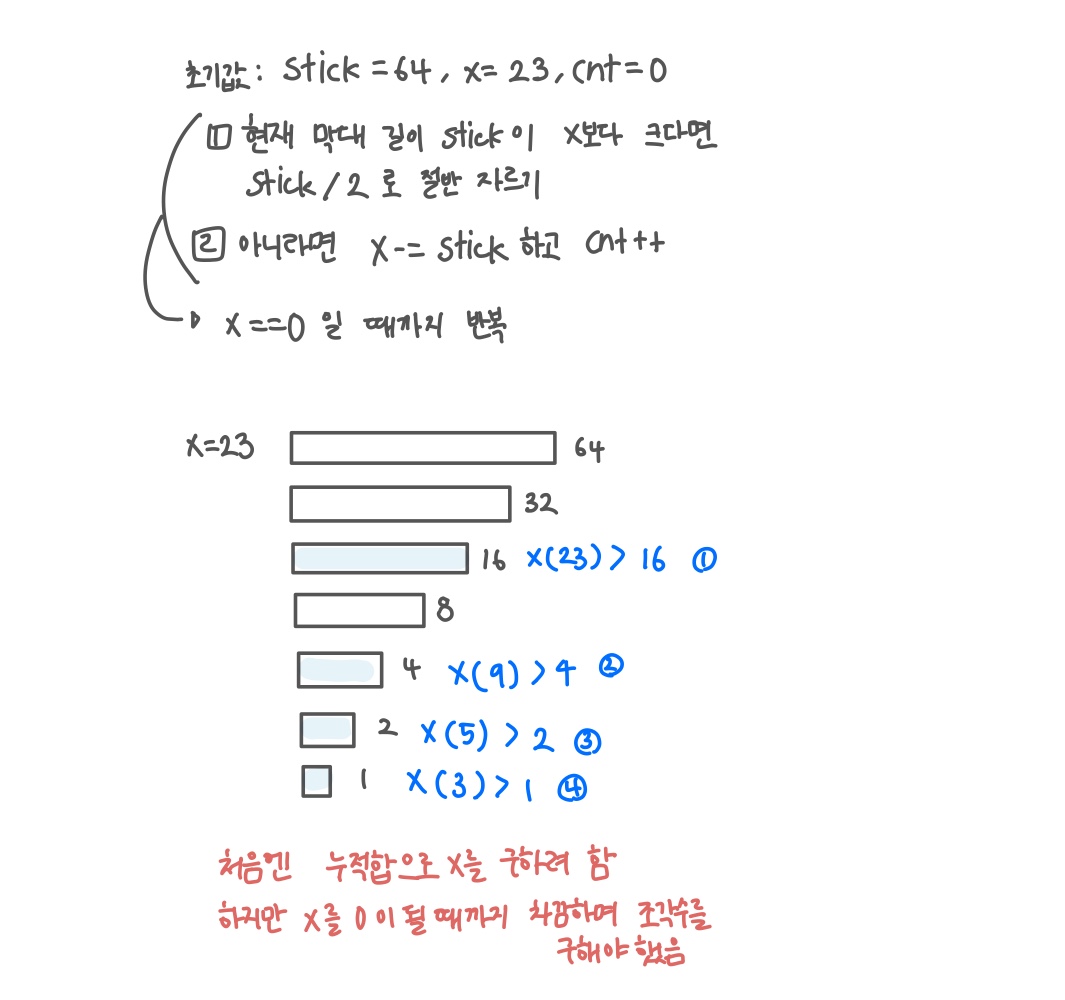 초기값 : stick = 64 , x = 23 , cnt = 0
1 현재 막대 길이 stick이 x보다 크다면
stick / 2 로 절반 자르기
2 아니라면 x -= stick 하고 cnt ++
x == 0 일 때까지 반복
x=23 64
32
16 x(23) > 16 ①
8
4 x(9) > 4 ②
2 x(5) > 2 ③
1 x(3) > 1 ④
처음엔 누적합으로 x를 구하려 함
하지만 x를 0이 될 때까지 차감하며 조각수를
구해야 했음